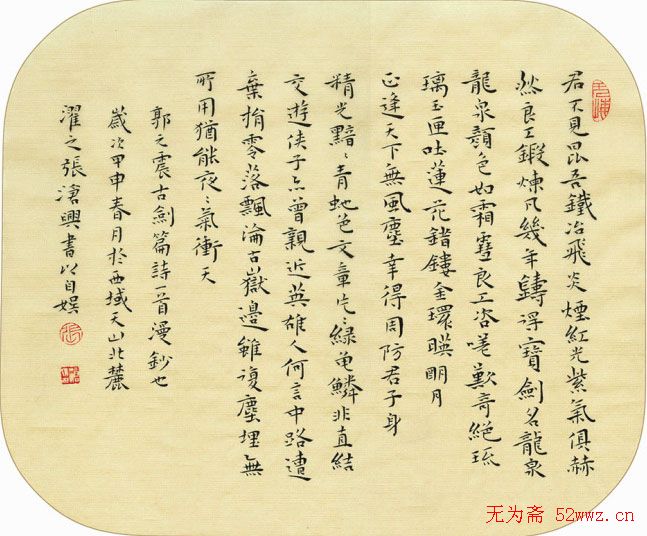 君不見昆吾鐵冶飛炎煙紅光紫氣俱赫
然良工鍛煉凡幾年鑄得寶劍名龍泉
龍泉顏色如霜雪良工咨嗟歎奇絕琉
璃玉匣吐蓮花錯鏤金環暎明月
正逢天下無風塵幸得周防君子身
精光黯黯青虵色文章片片綠龜鱗非直結
交遊俠子亦曾親近英雄人何言中路遭
棄捐零落飄淪古嶽邊雖復塵埋無
所用猶能夜夜氣衝天
郭元震古劍篇詩一首漫鈔也
歲次甲申春月於西域天山北麓
濯之張滄興書以自娛
无为斋 52wwz.cn